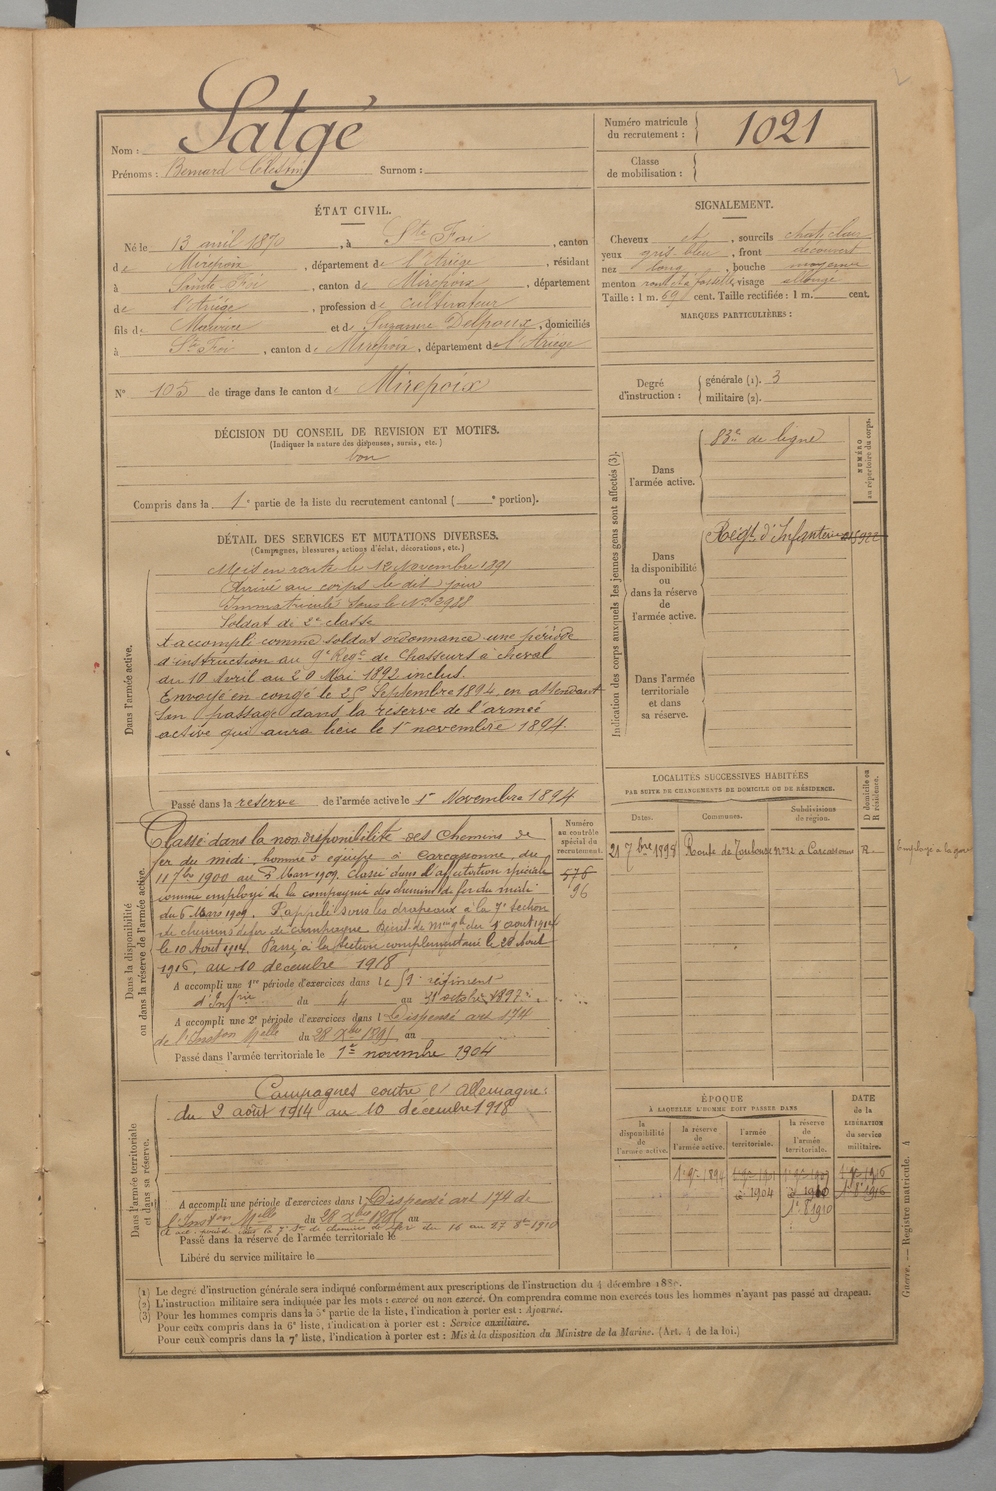 Nom : Satgé
Prénoms : Bernard Célestin Surnom :
Numéro matricule du recrutement : 1021
Classe de mobilisation :
ÉTAT CIVIL.
Né le 13 avril 1870, à Ste Foi, canton
de Mirepoix, département de l'Ariège, résidant
à Sainte-Foi, canton de Mirepoix, département
de l'Ariège, profession de cultivateur
fils de Maurice et de Suzanne Delpoux, domiciliés
à Ste Foi, canton de Mirepoix, département de l'Ariège
N° 105 de tirage dans le canton de Mirepoix
SIGNALEMENT.
Cheveux et, sourcils chat. clair
yeux gris bleu, front découvert
nez long, bouche moyenne
menton rond et à fossette, visage allongé
Taille : 1 m. 69 cent. Taille rectifiée : 1 m. cent.
MARQUES PARTICULIÈRES :
Degré d'instruction : générale (1). 3
militaire (2).
DÉCISION DU CONSEIL DE REVISION ET MOTIFS.
(Indiquer la nature des dispenses, sursis, etc.)
bon
Compris dans la 1e partie de la liste du recrutement cantonal ( e portion).
DÉTAIL DES SERVICES ET MUTATIONS DIVERSES.
(Campagnes, blessures, actions d'éclat, décorations, etc.)
Dans l'armée active.
Mis en route le 12 Novembre 1891
Arrivé au corps le dit jour
Immatriculé sous le No 3988
Soldat de 2e classe
A accompli comme soldat ordonnance une période
d'instruction au 9e Regt de Chasseurs à cheval
du 10 Avril au 20 Mai 1892 inclus.
Envoyé en congé le 25 Septembre 1894, en attendant
son passage dans la réserve de l'armée
active qui aura lieu le 1r novembre 1894.
Passé dans la réserve de l'armée active le 1r Novembre 1894
Indication des corps auxquels les jeunes gens sont affectés (3).
NUMÉRO au répertoire du corps.
Dans l'armée active.
83e de ligne
Dans la disponibilité ou dans la réserve de l'armée active.
Régt d'Infanterie
Dans l'armée territoriale et dans sa réserve.
LOCALITÉS SUCCESSIVES HABITÉES
PAR SUITE DE CHANGEMENTS DE DOMICILE OU DE RÉSIDENCE.
D domicile ou R résidence.
Dates. Communes. Subdivisions de région.
21 7bre 1898 Route de Toulouse No 32 a Carcassonne R
Employé à la gare
Dans la disponibilité ou dans la réserve de l'armée active.
Numéro au contrôle spécial du recrutement.
576
96
Classé dans la non disponibilité des Chemins de
fer du midi, homme d'équipe à Carcassonne, du
11 7bre 1900 au 5 Mars 1909. Classé dans l'affectation spéciale
comme employé de la compagnie des chemins de fer du midi
du 6 Mars 1909. Rappelé sous les drapeaux à la 7e section
de chemins de fer de campagne. Décret de Mon gle du 1r aout 1914
le 10 Aout 1914. Passé à la section complémentaire le 28 Aout
1916, au 10 décembre 1918
A accompli une 1re période d'exercices dans le régiment
d'Infrie du 4 au 31 octobre 1897
A accompli une 2e période d'exercices dans l Dispensé art 174
de l'Inston Melle du 28 Xbre 1895 au
Passé dans l'armée territoriale le 1er novembre 1904
Dans l'armée territoriale et dans sa réserve.
Campagnes contre l'Allemagne :
du 2 août 1914 au 10 décembre 1918
A accompli une période d'exercices dans l Dispensé art 174 de
l'Inston Melle du 28 Xbre 1895 au
Passé dans la réserve de l'armée territoriale le
Libéré du service militaire le
ÉPOQUE
À LAQUELLE L'HOMME DOIT PASSER DANS
la disponibilité de l'armée active. la réserve de l'armée active. l'armée territoriale. la réserve de l'armée territoriale.
DATE de la LIBÉRATION du service militaire.
1er 9bre 1894
1904
1910
1r 8 1910
1916
(1) Le degré d'instruction générale sera indiqué conformément aux prescriptions de l'instruction du 4 décembre 1889.
(2) L'instruction militaire sera indiquée par les mots : exercé ou non exercé. On comprendra comme non exercés tous les hommes n'ayant pas passé au drapeau.
(3) Pour les hommes compris dans la 5e partie de la liste, l'indication à porter est : Ajourné.
Pour ceux compris dans la 6e liste, l'indication à porter est : Service auxiliaire.
Pour ceux compris dans la 7e liste, l'indication à porter est : Mis à la disposition du Ministre de la Marine. (Art. 4 de la loi.)
Guerre. — Registre matricule. 4